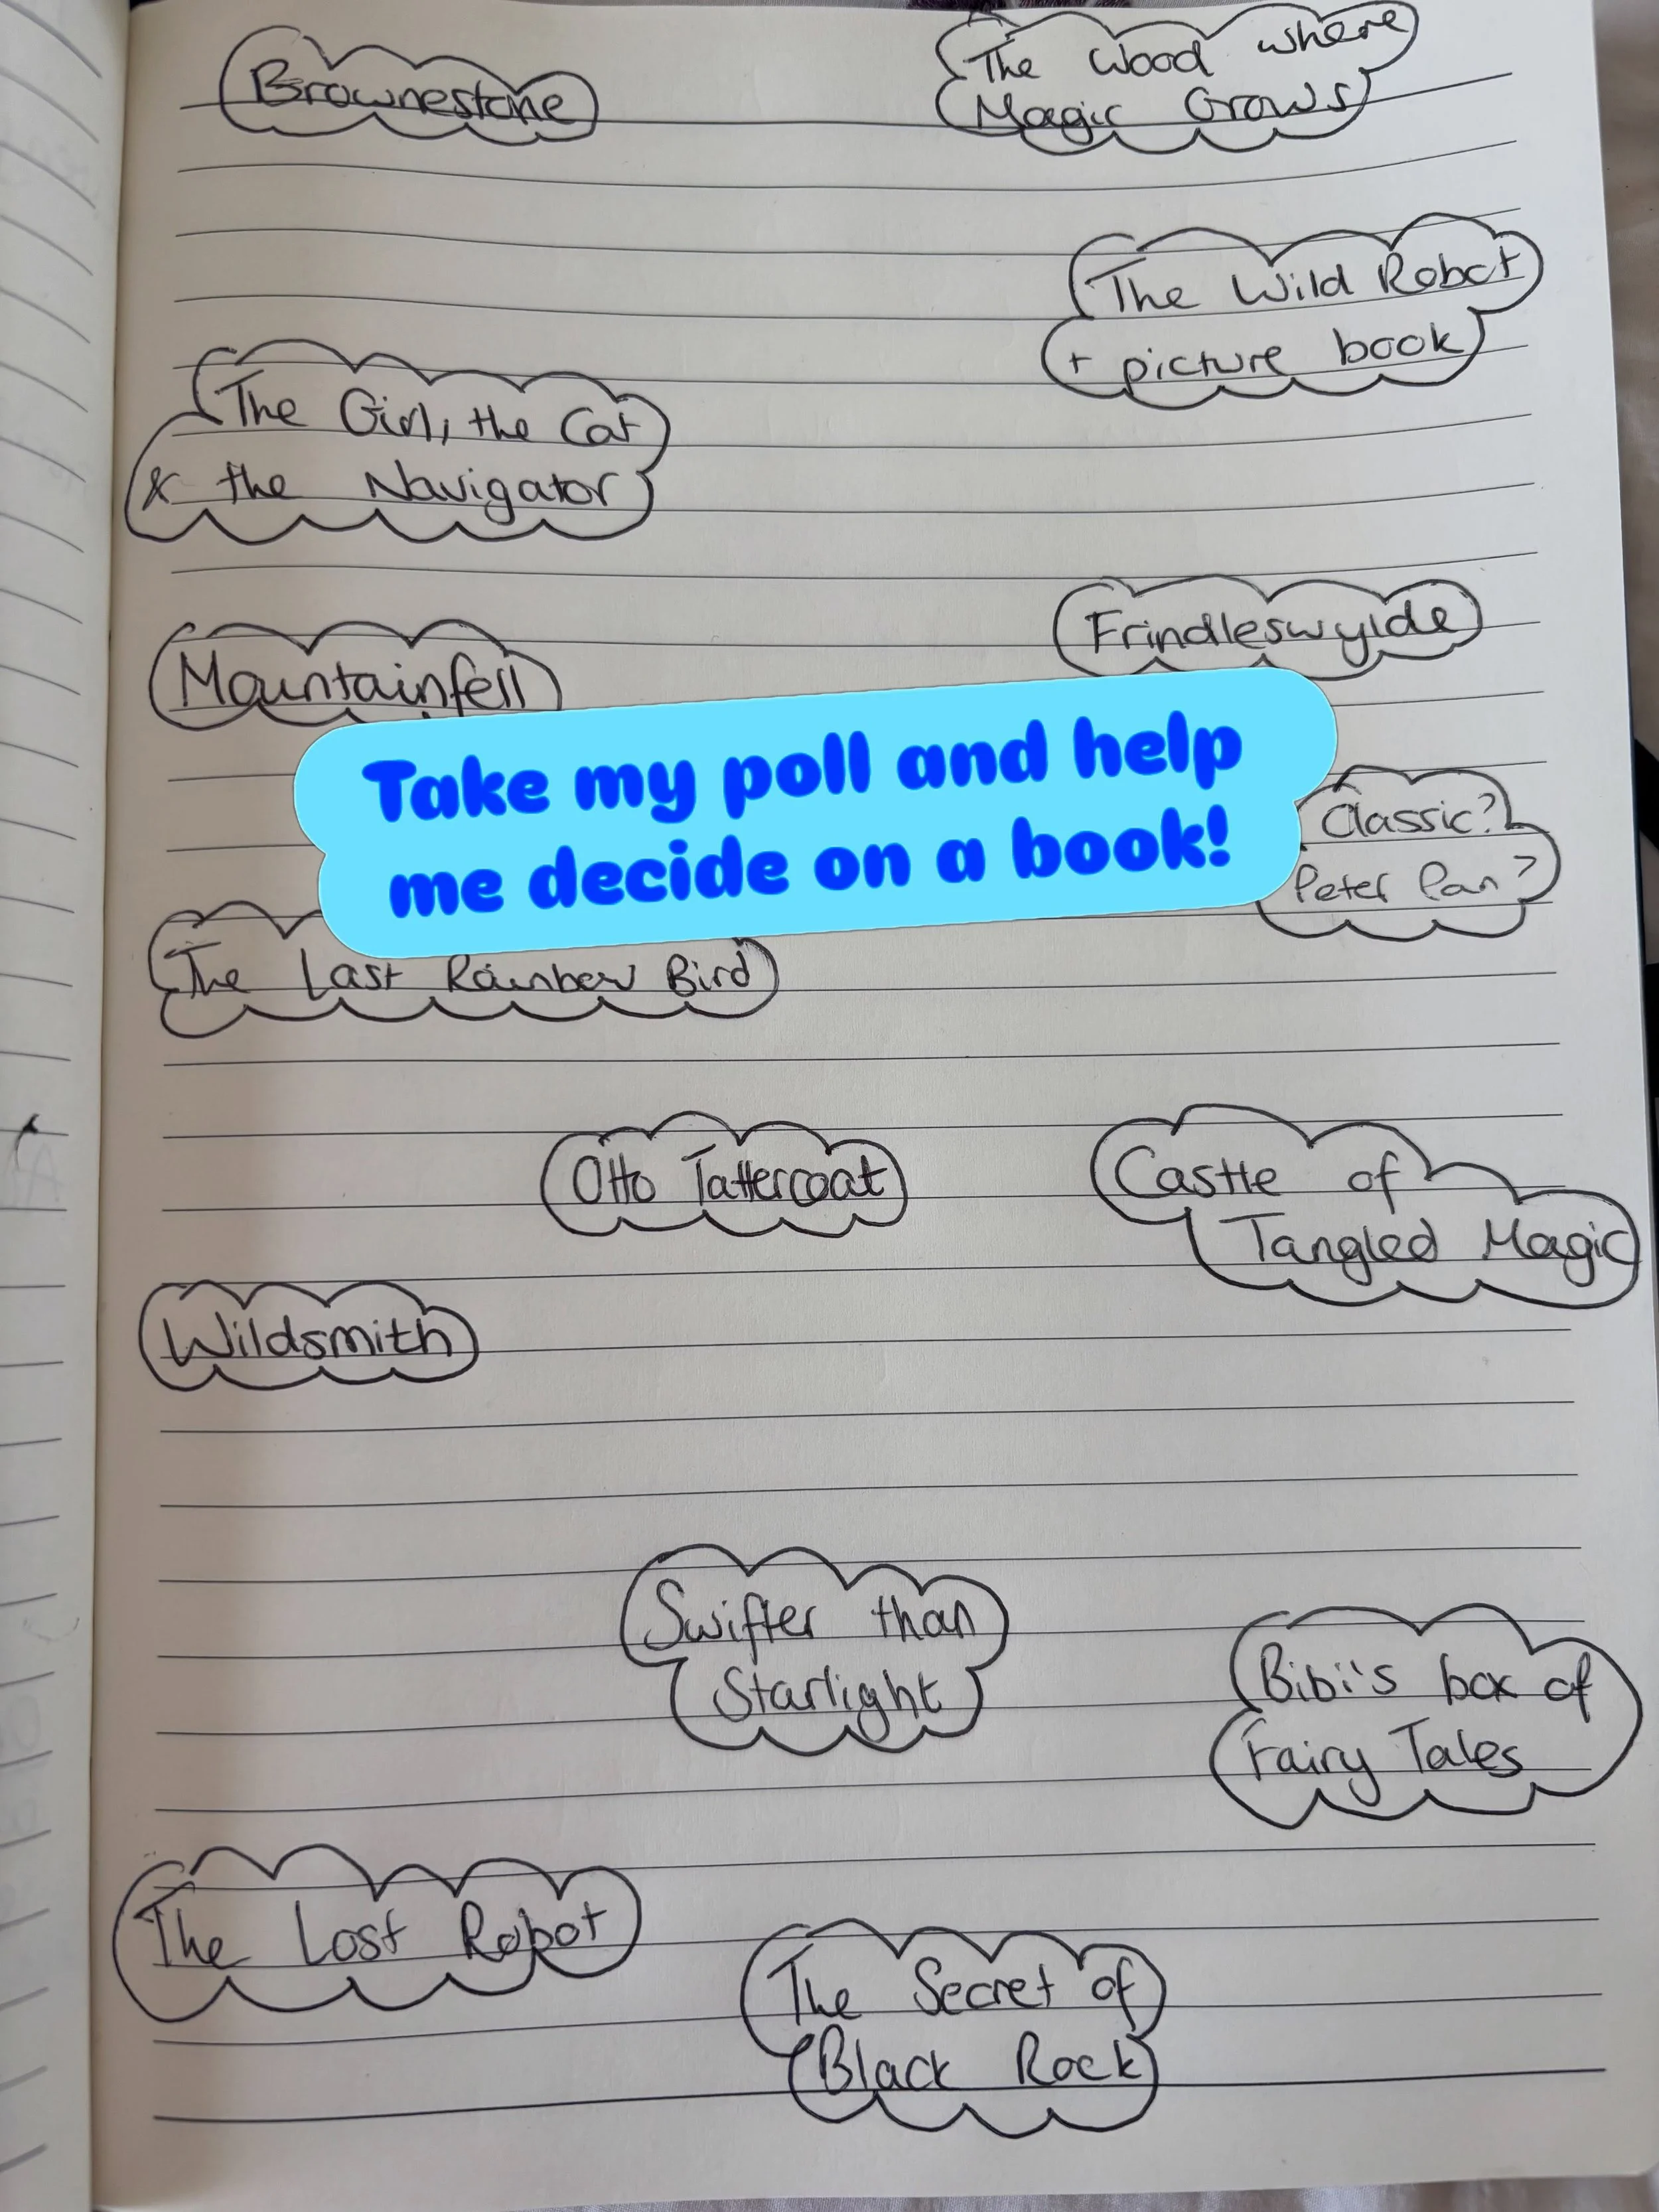 Brownestone
The Wood where
Magic Grows
The Wild Robot
+ picture book
The Girl, the Cat
& the Navigator
Frindleswylde
Mountainfell
Take my poll and help
me decide on a book!
Classic?
Peter Pan?
The Last Rainbow Bird
Otto Tattercoat
Castle of
Tangled Magic
Wildsmith
Swifter than
Starlight
Bibi's box of
Fairy Tales
The Lost Robot
The Secret of
Black Rock